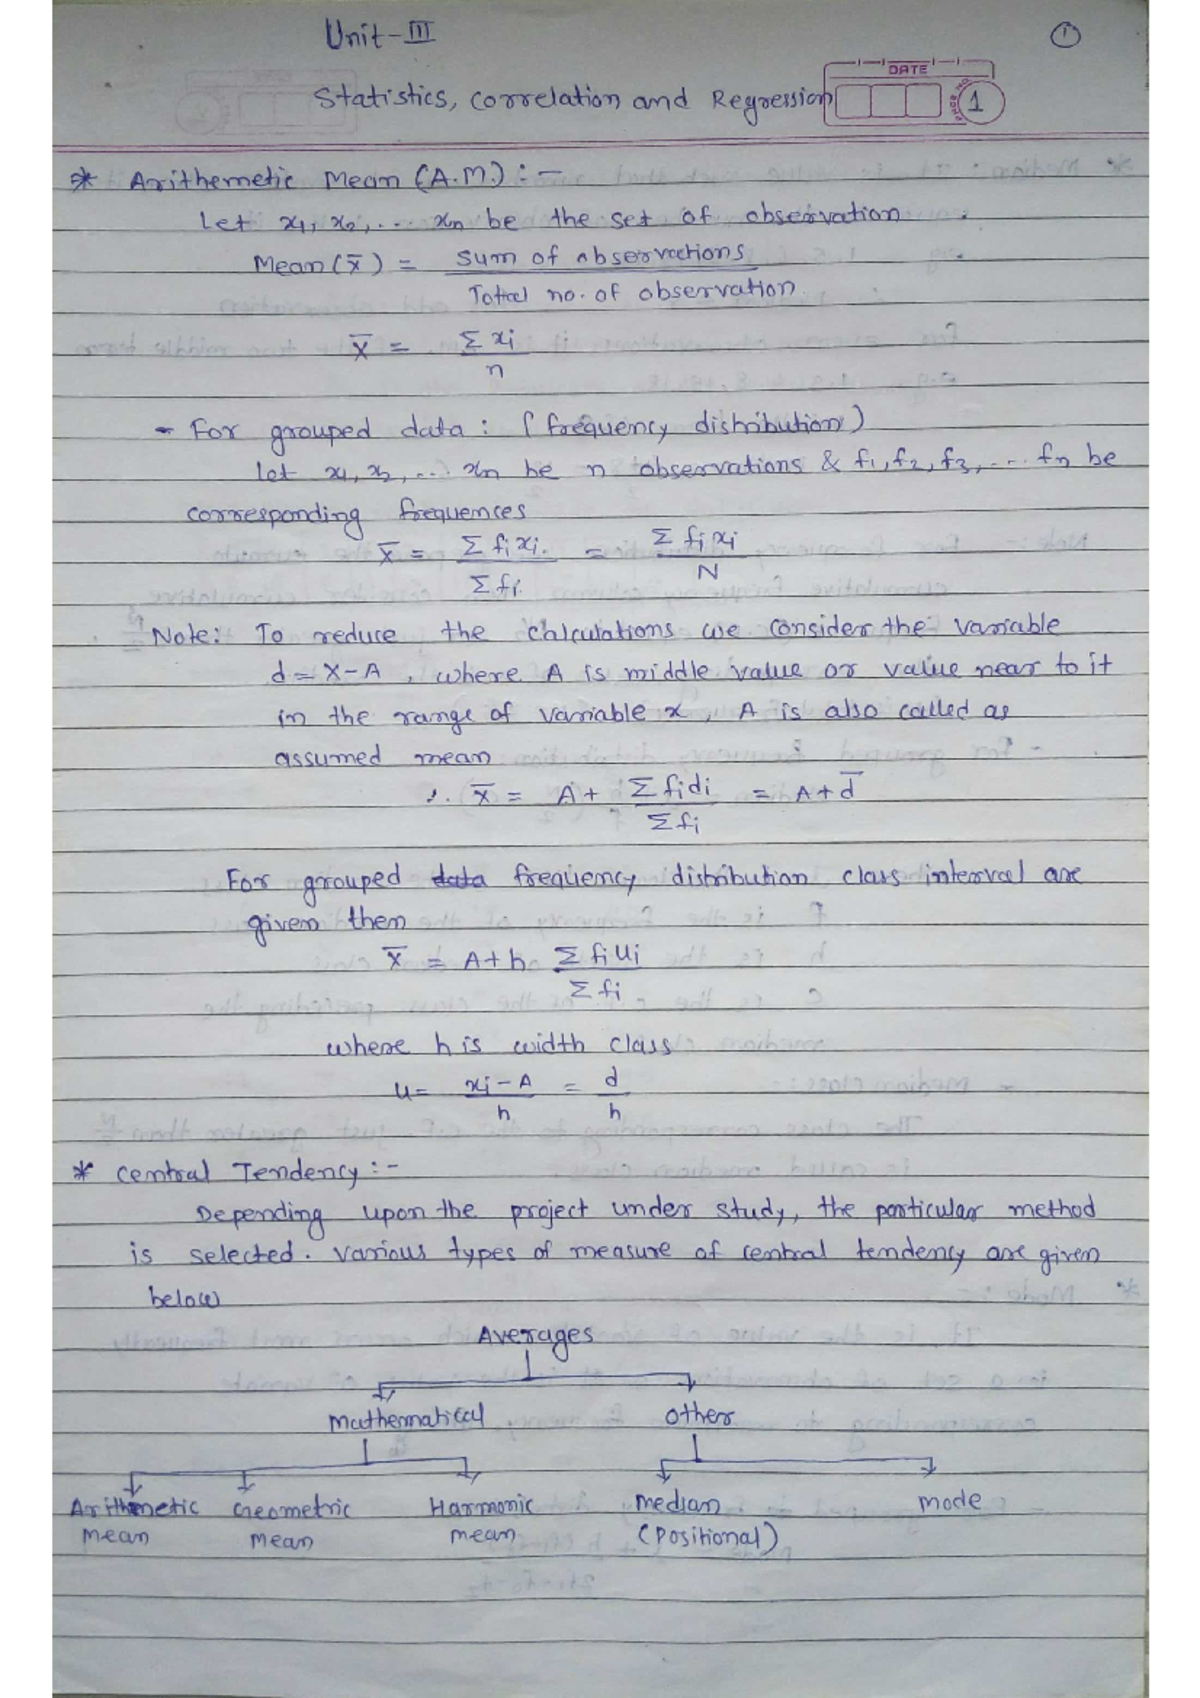 Unit-III
1
DATE
Statistics, Correlation and Regression
1
* Arithemetic Mean (A.M.) :-
Let x1, x2, ... xn be the set of observation
Mean (x̄) = Sum of observations
Total no. of observation
x̄ = Σ xi
n
- For grouped data : (frequency distribution)
Let x1, x2, ... xn be n observations & f1, f2, f3, ... fn be
corresponding frequences
x̄ = Σ fi xi = Σ fi xi
Σ fi N
Note: To reduce the calculations we consider the variable
d = x - A , where A is middle value or value near to it
in the range of variable x , A is also called as
assumed mean
∴ x̄ = A + Σ fi di = A + d̄
Σ fi
For grouped data frequency distribution class interval are
given then
x̄ = A + h Σ fi ui
Σ fi
where h is width class
u = xi - A = d
h h
* Central Tendency :-
Depending upon the project under study, the particular method
is selected. Various types of measure of central tendency are given
below
Averages
Mathematical Other
Arithmetic Geometric Harmonic Median Mode
mean mean mean (Positional)